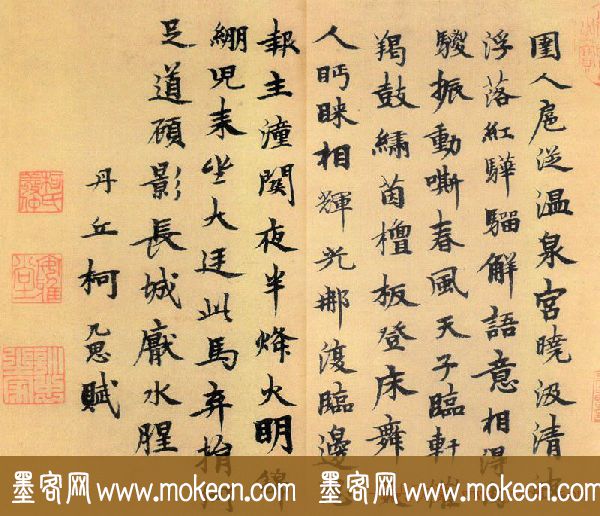 圉人扈從温泉宮曉汲清
浮落紅驊騮解語意相得
駿振動嘶春風天子臨軒催
羯鼓繡茵檀板登床舞
人眄睞相輝光那復臨邊
報主潼関夜半烽火明錦
綳兒来坐大廷此馬弃捐
足道顧影長城厭水腥
丹丘柯九思賦
柯氏敬仲
墨客网 www.mokecn.com 墨客网 www.mokecn.com